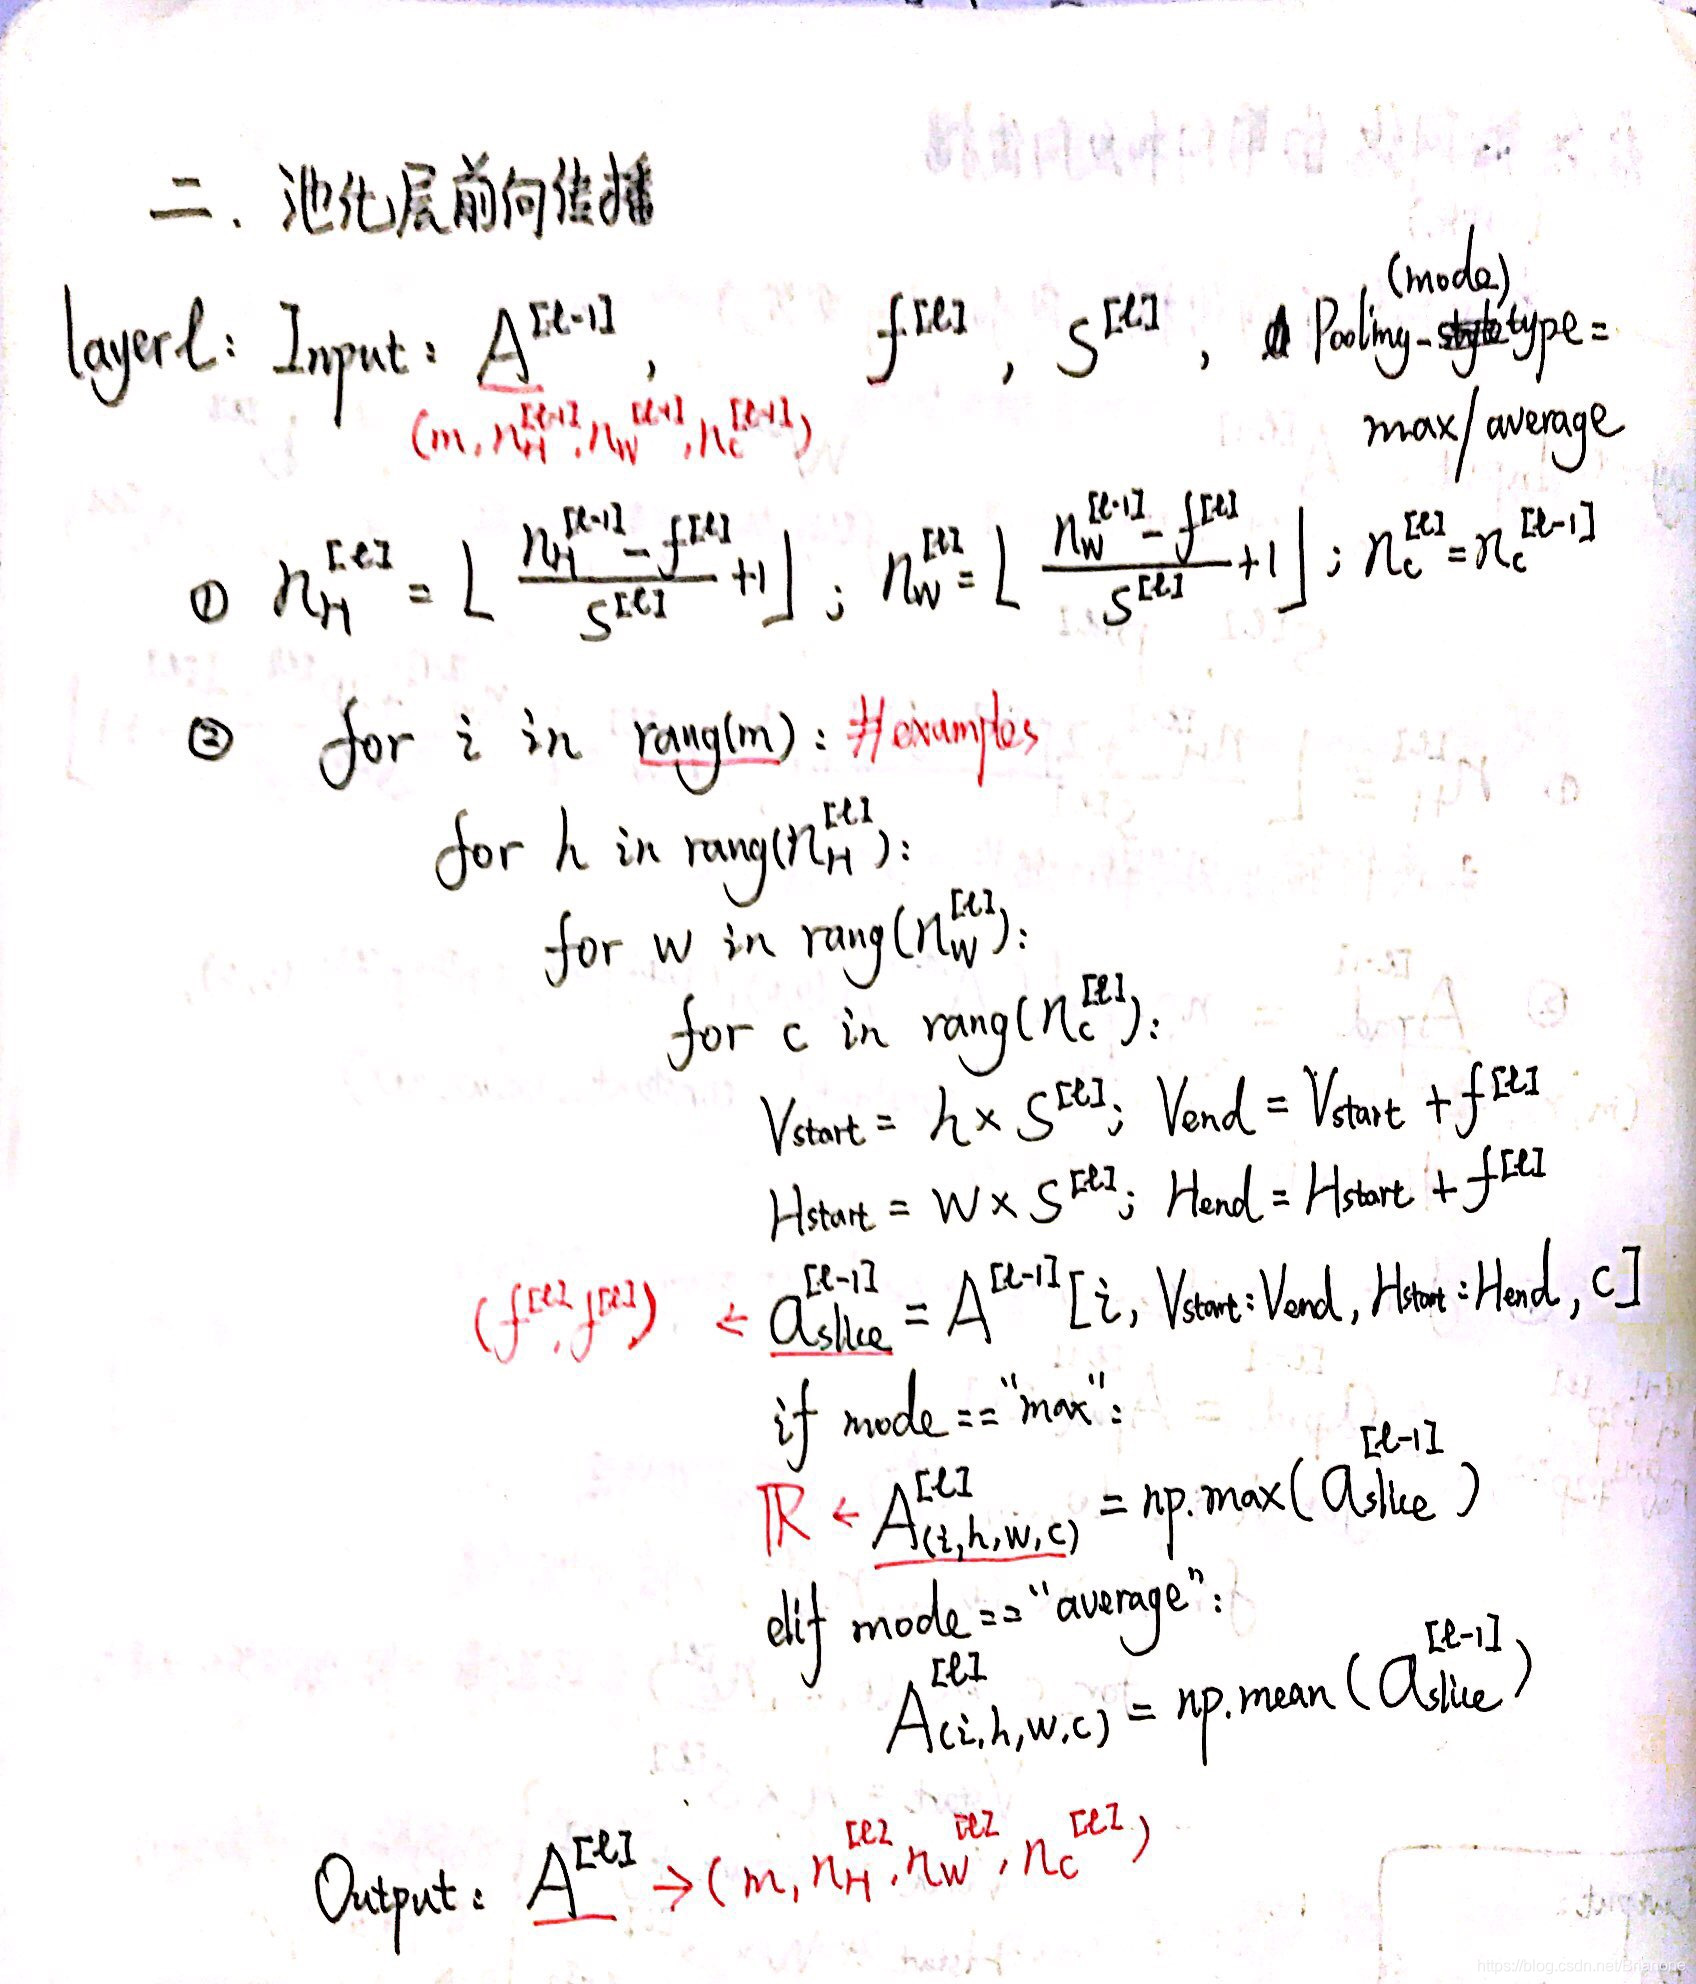 二. 池化层前向传播
layer l: Input: A^[l-1], f^[l], S^[l], Pooling-type (mode) =
max/average
(m, n_H^[l-1], n_W^[l-1], n_c^[l-1])
① n_H^[l] = ⌊ (n_H^[l-1] - f^[l]) / S^[l] +1 ⌋ ; n_W^[l] = ⌊ (n_W^[l-1] - f^[l]) / S^[l] +1 ⌋ ; n_c^[l] = n_c^[l-1]
② for i in rang(m): #examples
for h in rang(n_H^[l]):
for w in rang(n_W^[l]):
for c in rang(n_c^[l]):
Vstart = h × S^[l]; Vend = Vstart + f^[l]
Hstart = w × S^[l]; Hend = Hstart + f^[l]
(f^[l], f^[l]) ← a_slice^[l-1] = A^[l-1][i, Vstart:Vend, Hstart:Hend, c]
if mode == "max":
ℝ ← A^[l]_(i,h,w,c) = np.max(a_slice^[l-1])
elif mode == "average":
A^[l]_(i,h,w,c) = np.mean(a_slice^[l-1])
Output: A^[l] → (m, n_H^[l], n_W^[l], n_c^[l])